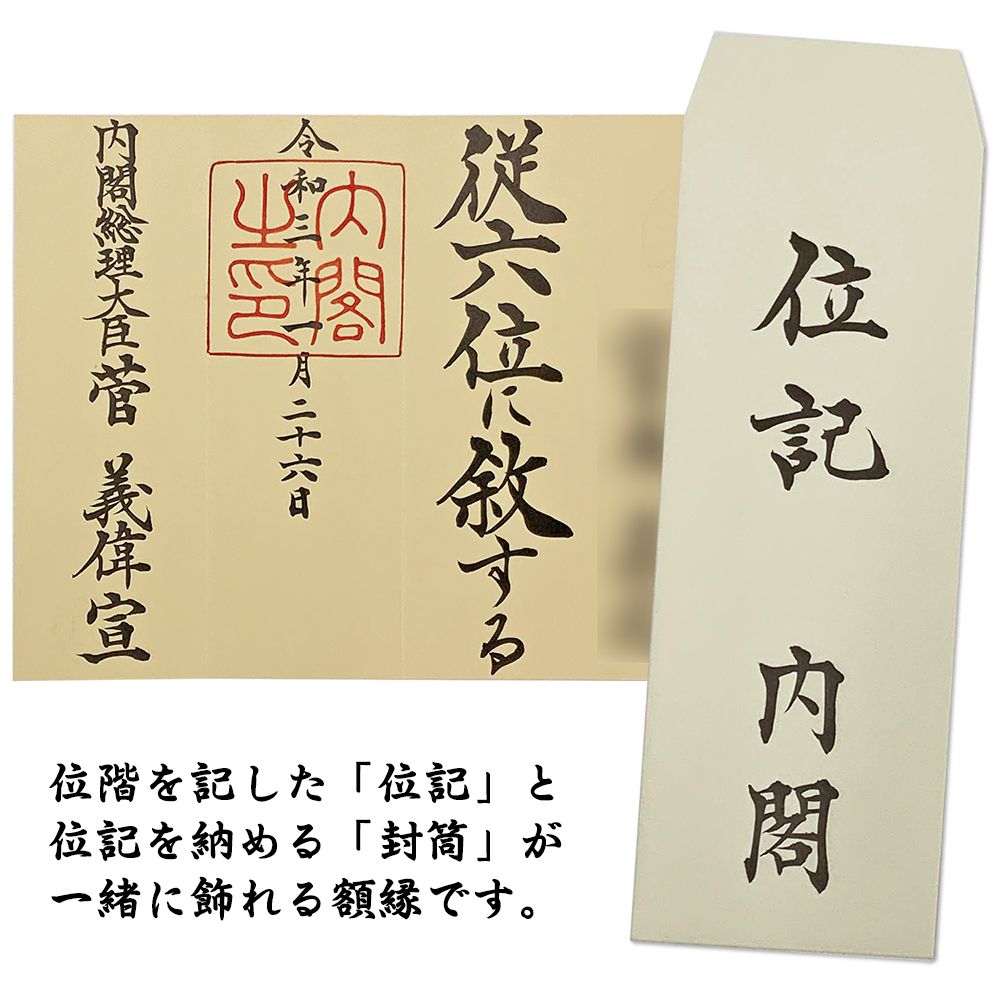 従六位に叙する
令和三年一月二十六日
内閣之印
内閣総理大臣菅 義偉宣
位記 内閣
位階を記した「位記」と
位記を納める「封筒」が
一緒に飾れる額縁です。